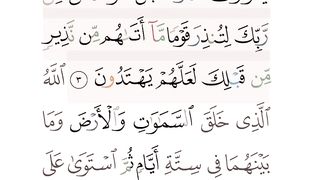 رَّبِّكَ لِتُنذِرَ قَوْمًا مَّآ أَتَىٰهُم مِّن نَّذِيرٍ
مِّن قَبْلِكَ لَعَلَّهُمْ يَهْتَدُونَ ٣ ٱللَّهُ
ٱلَّذِى خَلَقَ ٱلسَّمَٰوَٰتِ وَٱلْأَرْضَ وَمَا
بَيْنَهُمَا فِى سِتَّةِ أَيَّامٍ ثُمَّ ٱسْتَوَىٰ عَلَى